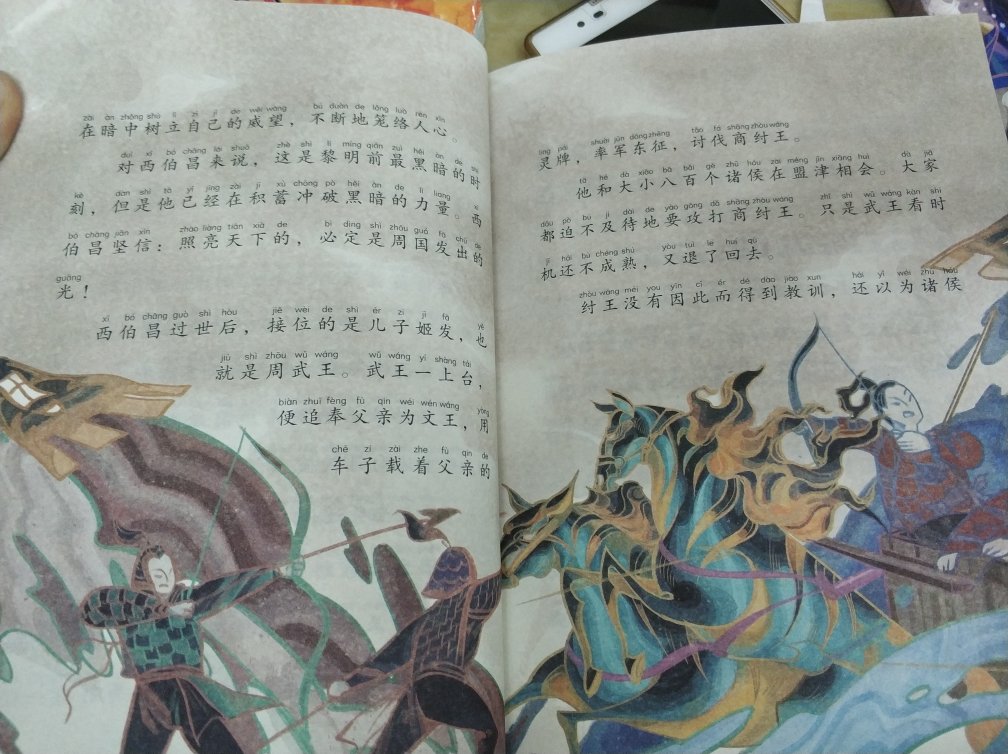 zài àn zhōng shù lì zì jǐ de wēi wàng bú duàn de lǒng luò rén xīn
在暗中树立自己的威望，不断地笼络人心。
duì xī bó chāng lái shuō zhè shì lí míng qián zuì hēi àn de shí
对西伯昌来说，这是黎明前最黑暗的时
kè dàn shì tā yǐ jīng zài jī xù chōng pò hēi àn de lì liàng xī
刻，但是他已经在积蓄冲破黑暗的力量。西
bó chāng jiān xìn zhào liàng tiān xià de bì dìng shì zhōu guó fā chū de
伯昌坚信：照亮天下的，必定是周国发出的
guāng
光！
xī bó chāng guò shì hòu jiē wèi de shì ér zi jī fā yě
西伯昌过世后，接位的是儿子姬发，也
jiù shì zhōu wǔ wáng wǔ wáng yí shàng tái
就是周武王。武王一上台，
biàn zhuī fèng fù qīn wéi wén wáng yòng
便追奉父亲为文王，用
chē zi zài zhe fù qīn de
车子载着父亲的
líng pái shuài jūn dōng zhēng tǎo fá shāng zhòu wáng
灵牌，率军东征，讨伐商纣王。
tā hé dà xiǎo bā bǎi gè zhū hóu zài méng jīn xiāng huì dà jiā
他和大小八百个诸侯在盟津相会。大家
dōu pò bù jí dài de yào gōng dǎ shāng zhòu wáng zhǐ shì wǔ wáng kàn shí
都迫不及待地要攻打商纣王。只是武王看时
jī hái bù chéng shú yòu tuì le huí qù
机还不成熟，又退了回去。
zhòu wáng méi yǒu yīn cǐ ér dé dào jiào xun hái yǐ wéi zhū hóu
纣王没有因此而得到教训，还以为诸侯